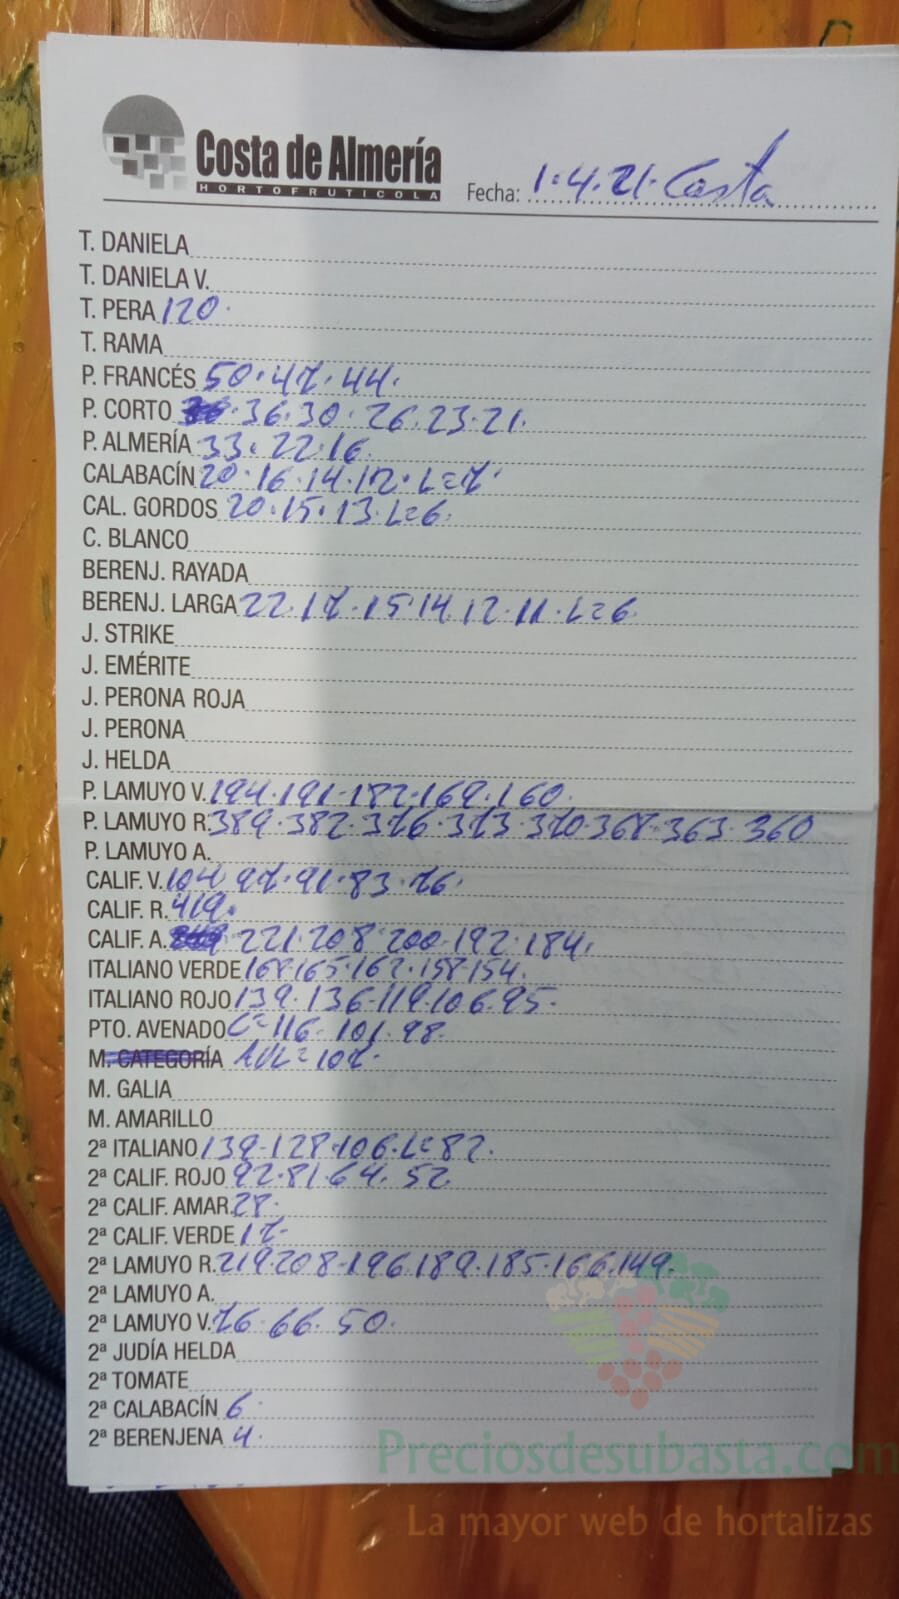 Costa de Almería
HORTOFRUTICOLA
Fecha: 1.4.21. Costa
T. DANIELA
T. DANIELA V.
T. PERA 120.
T. RAMA
P. FRANCÉS 50.47.44.
P. CORTO 36.30.26.23.21.
P. ALMERÍA 33.22.16.
CALABACÍN 20.16.14.12.L=7.
CAL. GORDOS 20.15.13.L=6.
C. BLANCO
BERENJ. RAYADA
BERENJ. LARGA 22.17.15.14.12.11.L=6
J. STRIKE
J. EMÉRITE
J. PERONA ROJA
J. PERONA
J. HELDA
P. LAMUYO V. 194.191.182.169.160.
P. LAMUYO R. 389.382.376.373.370.368.363.360
P. LAMUYO A.
CALIF. V. 104 97.91.83.76.
CALIF. R. 419.
CALIF. A. 221.208.200.192.184.
ITALIANO VERDE 168.165.162.158.154.
ITALIANO ROJO 139.136.119.106.95.
PTO. AVENADO C=116.101.98.
M. CATEGORÍA =107.
M. GALIA
M. AMARILLO
2ª ITALIANO 139.128.106.L=82.
2ª CALIF. ROJO 92.81.64.52.
2ª CALIF. AMAR. 28.
2ª CALIF. VERDE 17.
2ª LAMUYO R. 219.208.196.189.185.166.149.
2ª LAMUYO A.
2ª LAMUYO V. 76.66.50.
2ª JUDÍA HELDA
2ª TOMATE
2ª CALABACÍN 6.
2ª BERENJENA 4.
Preciosdesubasta.com
La mayor web de hortalizas